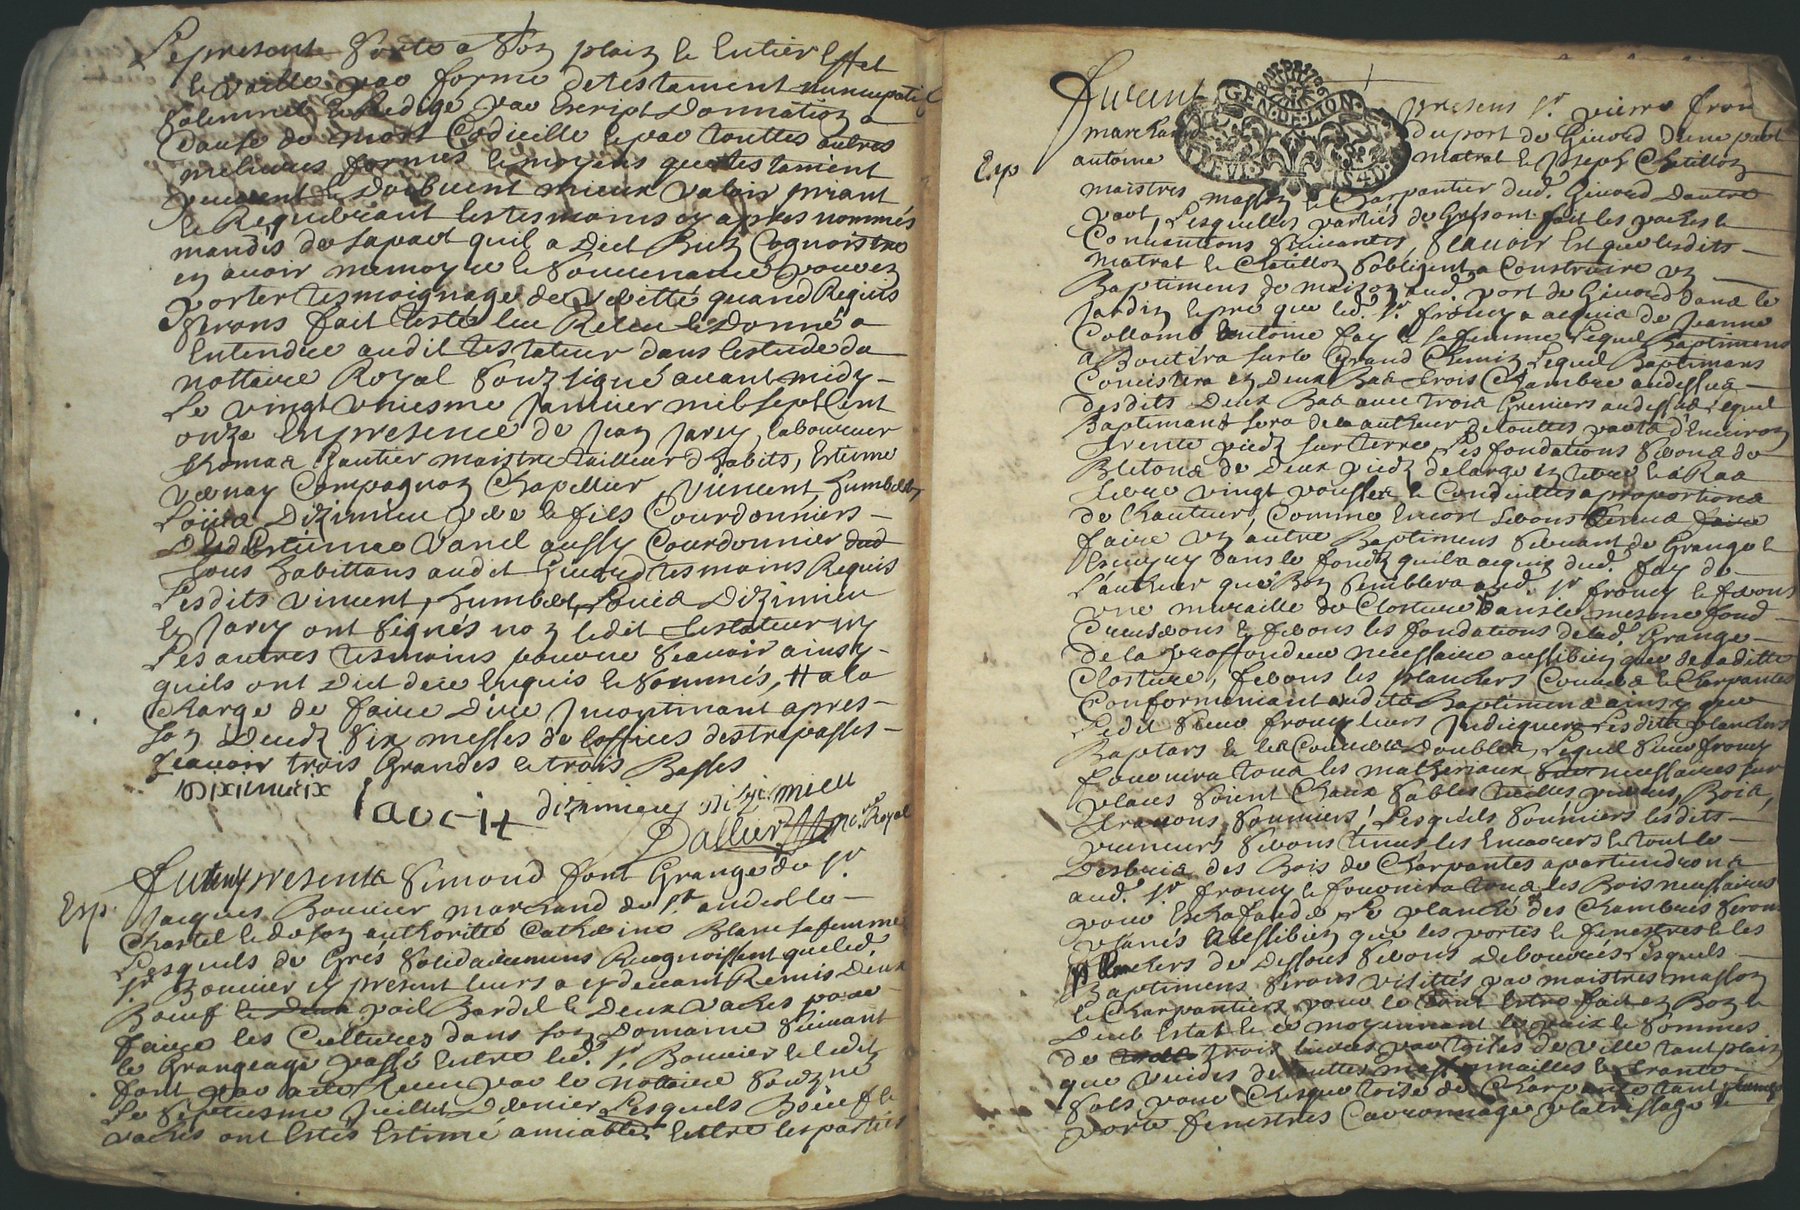 Le present sorte a son plain et entier effet
et vaille par forme de testament nuncupatif
solemnel et redigé par escript Donnation a
Cause de mort Codicille et par touttes autres
meilleures formes et moyens que testament
peuvent et doibvent mieux valoir priant
et Requerant les tesmoins cy apres nommés
mandés de sa part quil a dict bien Cognoistre
en avoir memoyre et souvenance pour en
porter tesmoignage de veritté quand Requis
seront fait leste leu Releu et donné a
Entendre audit testateur dans lestude du
nottaire Royal soubzsigné avant midy
Le vingt uniesme janvier mil sept Cent
onze En presence de jean jarey laboureur
thomas gautier maistre tailleur dhabits, Estienne
Compagnon Chapellier, vincent, humbert,
Loüis Dizimieu pere et fils Courdonniers
Estienne Vanel aussy Courdonnier
tous habittans audit Givord tesmoins Requis
Lesdits vincent, humbert, Louis Dizimieu
et jarey ont signés non ledit testateur ny
les autres tesmoins pour ne scavoir ainsy
quils ont dict de ce Enquis et sommés, # a la
Charge de faire dire jncontinant apres
son deudz six messes de loffices des trepassés
scavoir trois Grandes et trois Basses
dizimieu dizimieu
Dallier no.re Royal
Furent presents Simond font Granger du Sr
Exp. Jacques Bouvier marchand de St andeol le
Chastel et de son authoritté Catherine Blanc sa femme
Lesquels de Grés solidairement Recognoissent que led.
Sr Bouvier cy present leurs a cy devant Remis deux
Bœuf poil Bardel et deux vaches pour
faire les Cultures dans son Domaine suivant
le Grangeage passé Entre led. Sr Bouvier et ledit
font par acte Receu par le nottaire soubzné
Le septiesme juillet dernier Lesquels Bœuf et
vaches ont Estés Estimé amiablet Entre les parties
Furent presens Sr pierre frou
GEN. DE LION
marchand du port de Givord dune part
Exp antoine matrat et Joseph Chatillon
maistres masson et Charpantier dud. Givord dautre
part, Lesquelles parties de Gré ont fait les paches et
Conventions suivantes, scavoir Est que lesdits
matrat et Chatillon sobligent a Construire un
Baptimens de maizon aud. port de Givord dans le
jardin et pré que led. Sr frouy a acquis de jeanne
Collomb antoine fay et sa femme Lequel Baptiment
aBoutira sur le Grand Chemin Lequel Baptimens
Concistera en deux Bas trois Chambre audessus
desdits deux Bas avec trois Greniers audessus Lequel
Baptimant sera de la autheur de touttes parts denviron
Trente piedz sur terre, Les fondations seront de
de deux piedz de large en terre et a Raa
terre vingt pousses et Conduittes a proportions
de lhauteur, Comme Encore seront tenus faire
faire un autre Baptimens servant de Grange et
Escuyry dans le fondz quil a acquis dud. fay de
Lauthur que Bon semblera aud. Sr frouy et feront
une muraille de Closture dans le mesme fond
Creuseront et feront les fondations de lad. Grange
de la proffondeur necessaire aussi bien que de laditte
Closture, feront les planchers Couverts et Charpantes
Conformement audits Baptimens ainsy que
Ledit sieur frouy leurs jndiquera Lesdits planchers
Baptars et les Couverts doubles, Lequel sieur frouy
fournira tous les matheriaux necessaires sur
places soient Chaux sables thuilles pierres, Bois,
travons, soumiers, Lesquels soumiers lesdits
preneurs seront tenus les Encocher Et tout le
Desbris des Bois de Charpantes apartiendrons
aud. Sr frouy et fournira tous les Bois necessaires
pour Eschafaude et Le planché des Chambres seront
planés aussi bien que les portes et fenestres et les
planchers de dessous seront debourés Lesquels
Baptimens seront visittés par maistres masson
et Charpantiers pour le tout Estre fait en Bon et
deub Estat Et ce moyennant le prix et sommes
de trois livres par toizes de ville tant plain
que vuides de touttes massonnailles et trante
sols pour Chasque toise de Charpante tant planché
porte fenestres Carronnage platrissage et